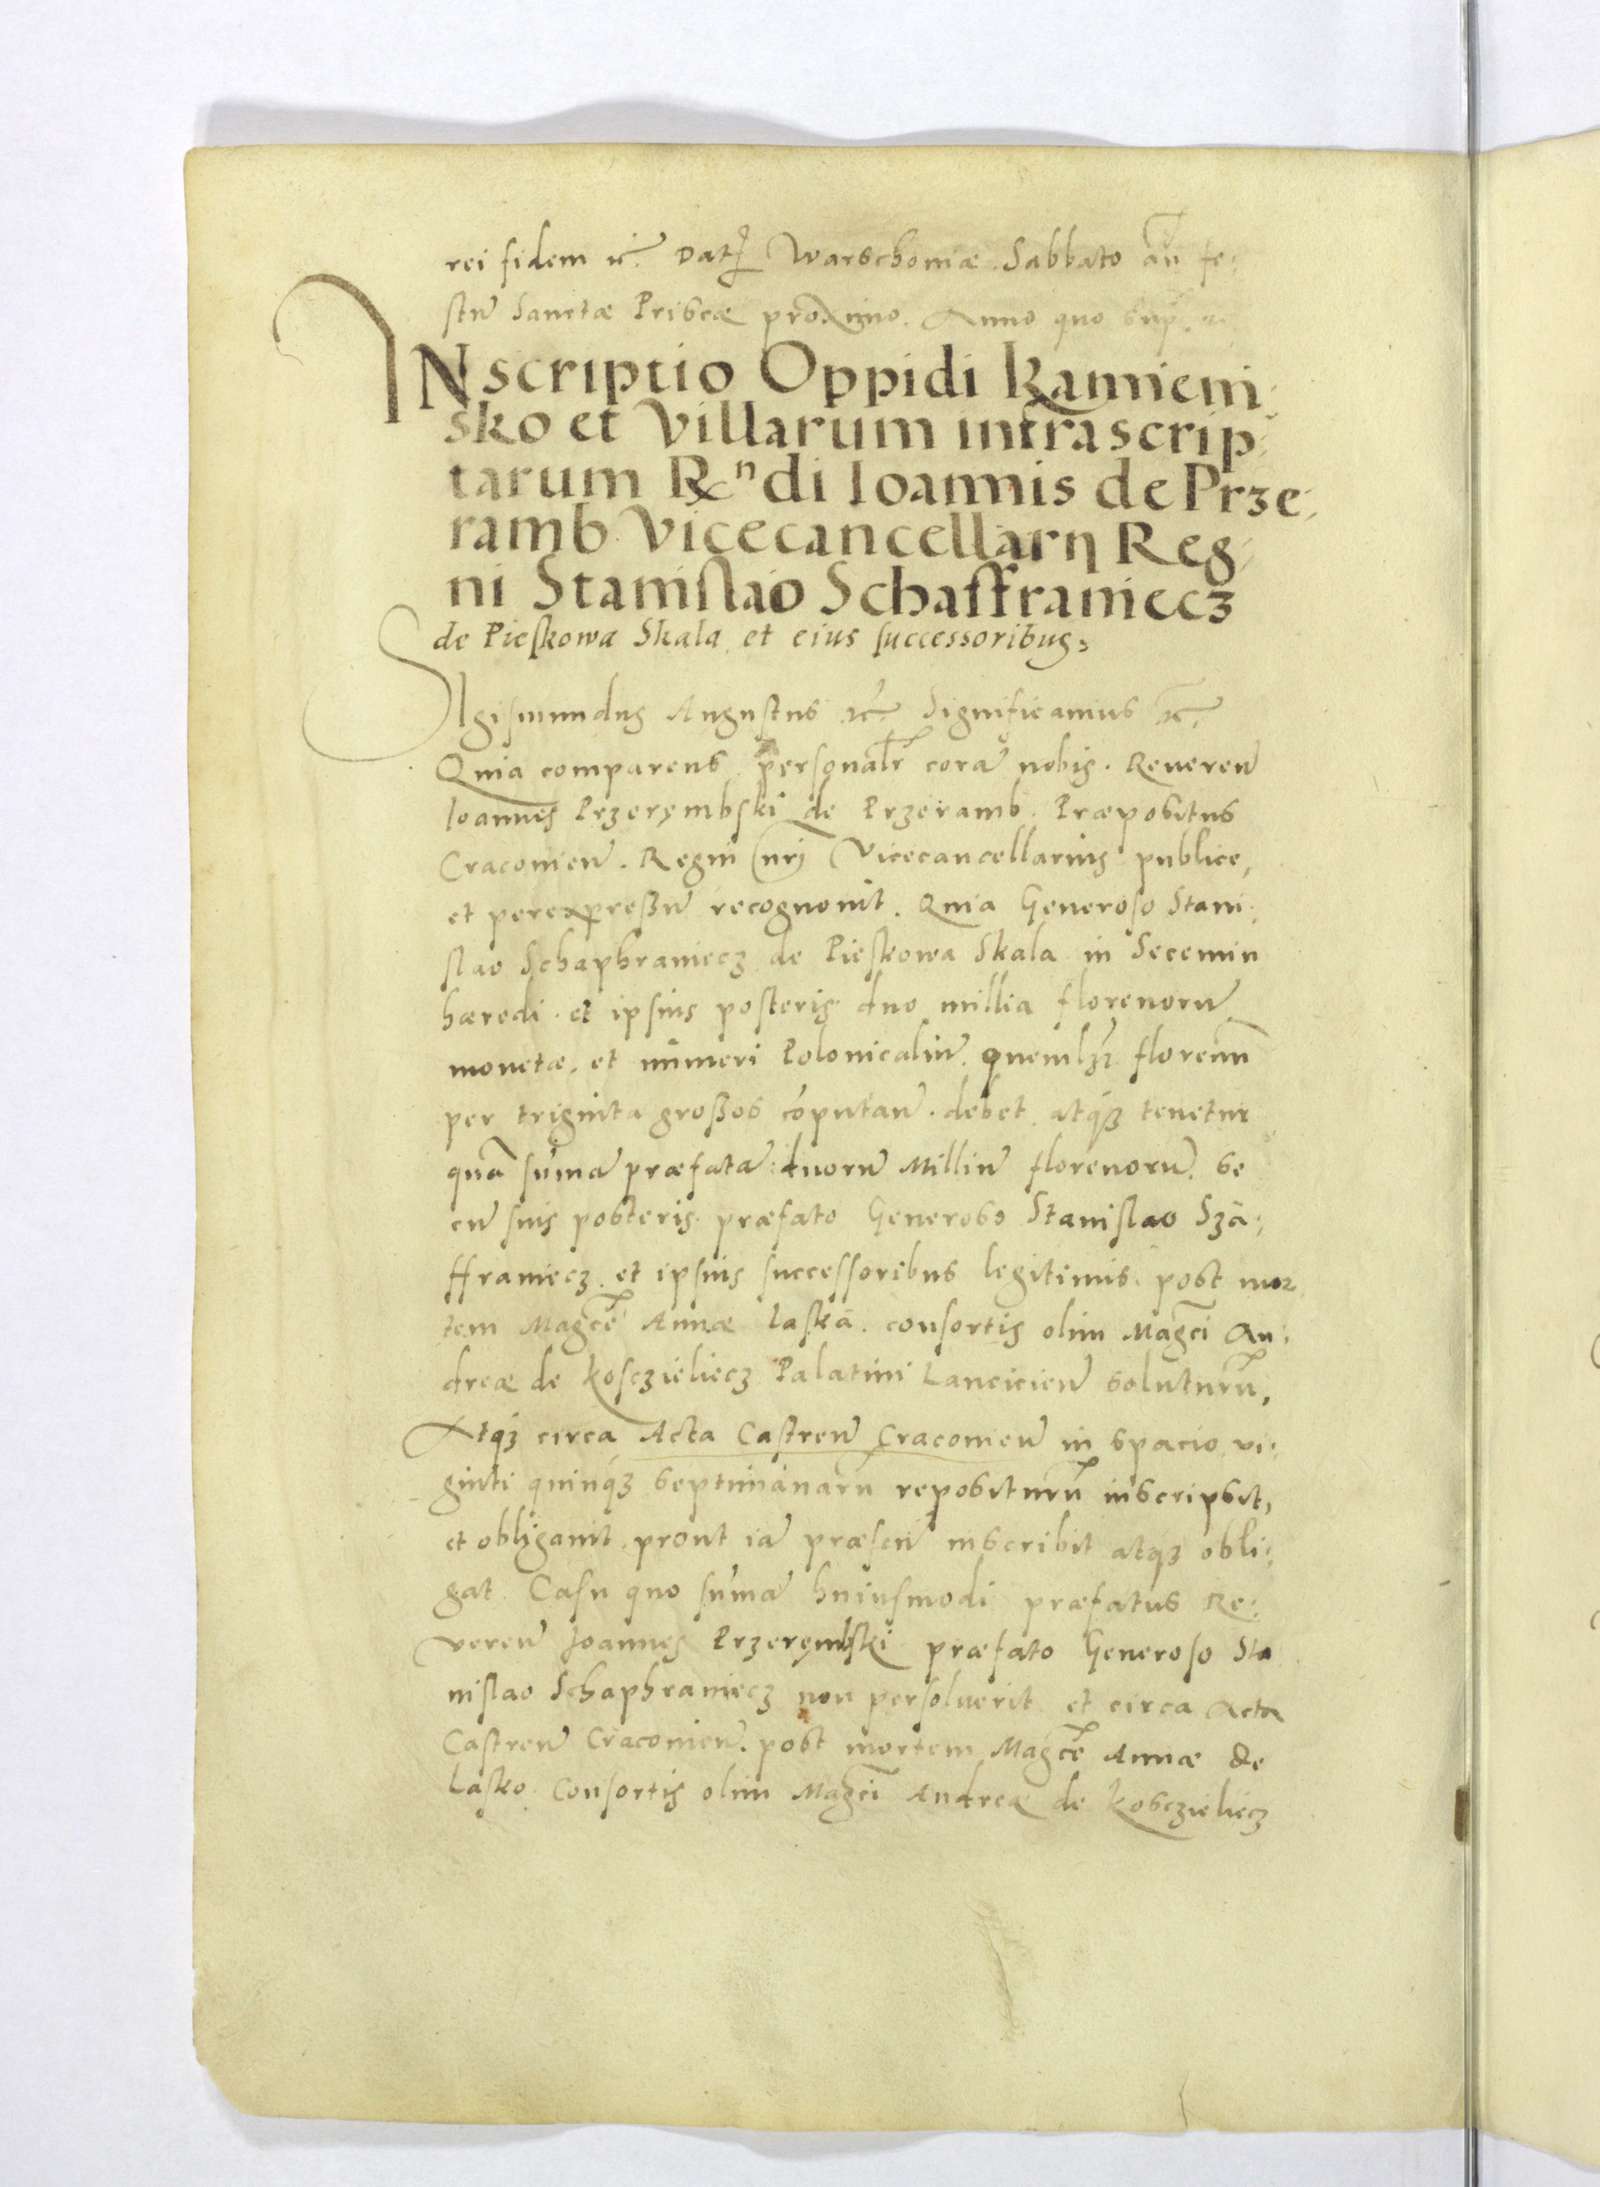 rei fidem &c̃. Datҙ Warschoniæ. Sabbato añ fe:
stũ Sanctæ Priscæ proximo. Anno quo sup̃. &c̃
INscriptio Oppidi Kamieni:
sko et Villarum infrascrip:
tarum Rndi Ioannis de Prze:
ramb Vicecancellarij Reg:
ni Stanislao Schaffraniecz
de Pieskowa Skala et eius successoribus.
SIgismundus Augustus &c̃. Significamus &c̃.
Quia comparens personalr̃ corã nobis. Reueren̄
Ioannes Przerembski de Przeramb. Præpositus
Cracouien̄. Regni nr̃i Vicecancellarius publice,
et per expressũ recognouit. Quia Generoso Stani:
slao Schaphraniecz de Pieskowa Skala in Secemin
hæredi. et ipsius posteris duo millia florenorũ
monetæ. et numeri Polonicaliũ. quemlҙ florenũ
per triginta grossos cõputan̄. debet atqꝫ tenetur
quã sũmã præfatã duorũ Milliũ florenorũ. se
cũ suis posteris præfato Generoso Stanislao Sza:
ffraniecz. et ipsius successoribus legitimis post mor
tem Magcẽ Annæ Laska. consortis olim Magcĩ An:
dreæ de Kosczieliecz Palatini Lancicien̄ soluturũ,
Atqꝫ circa Acta Castren̄ Cracouien̄ in spacio vi:
ginti quinqꝫ septimanarũ repositurũ inscripsit,
et obligauit. prout iã præsen̄ inscribit atqꝫ obli:
gat. Casu quo sũmã huiusmodi præfatus Re:
ueren̄ Joannes Przerembski præfato Generoso Sta
nislao Schaphraniecz non persoluerit et circa Acta
Castren̄ Cracouien̄. post mortem Magcẽ Annæ de
Lasko Consortis olim Magcĩ Andreæ de Kosczieliecz